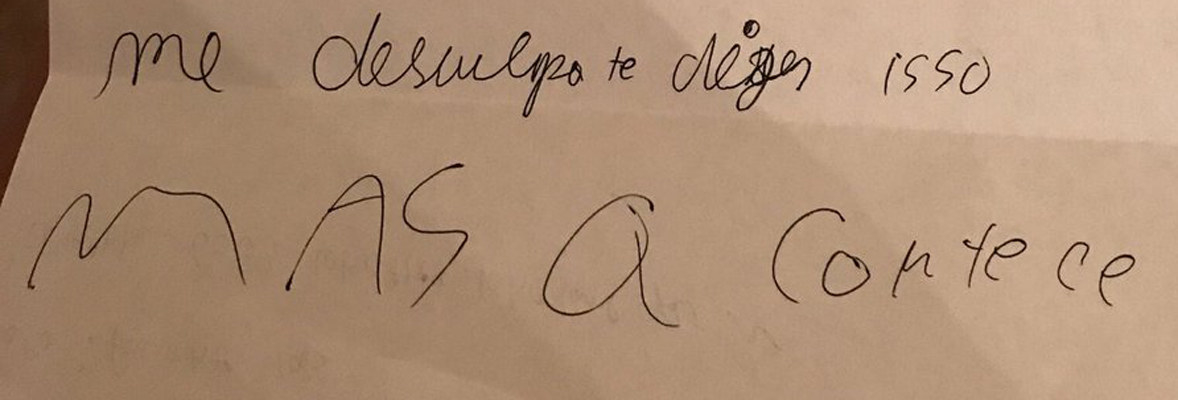 me desculpa te dizer isso
MAS a Contece